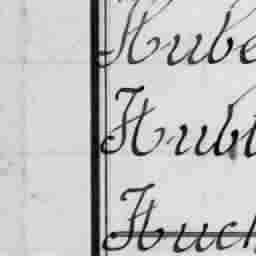 Hube
Hubl
Huch